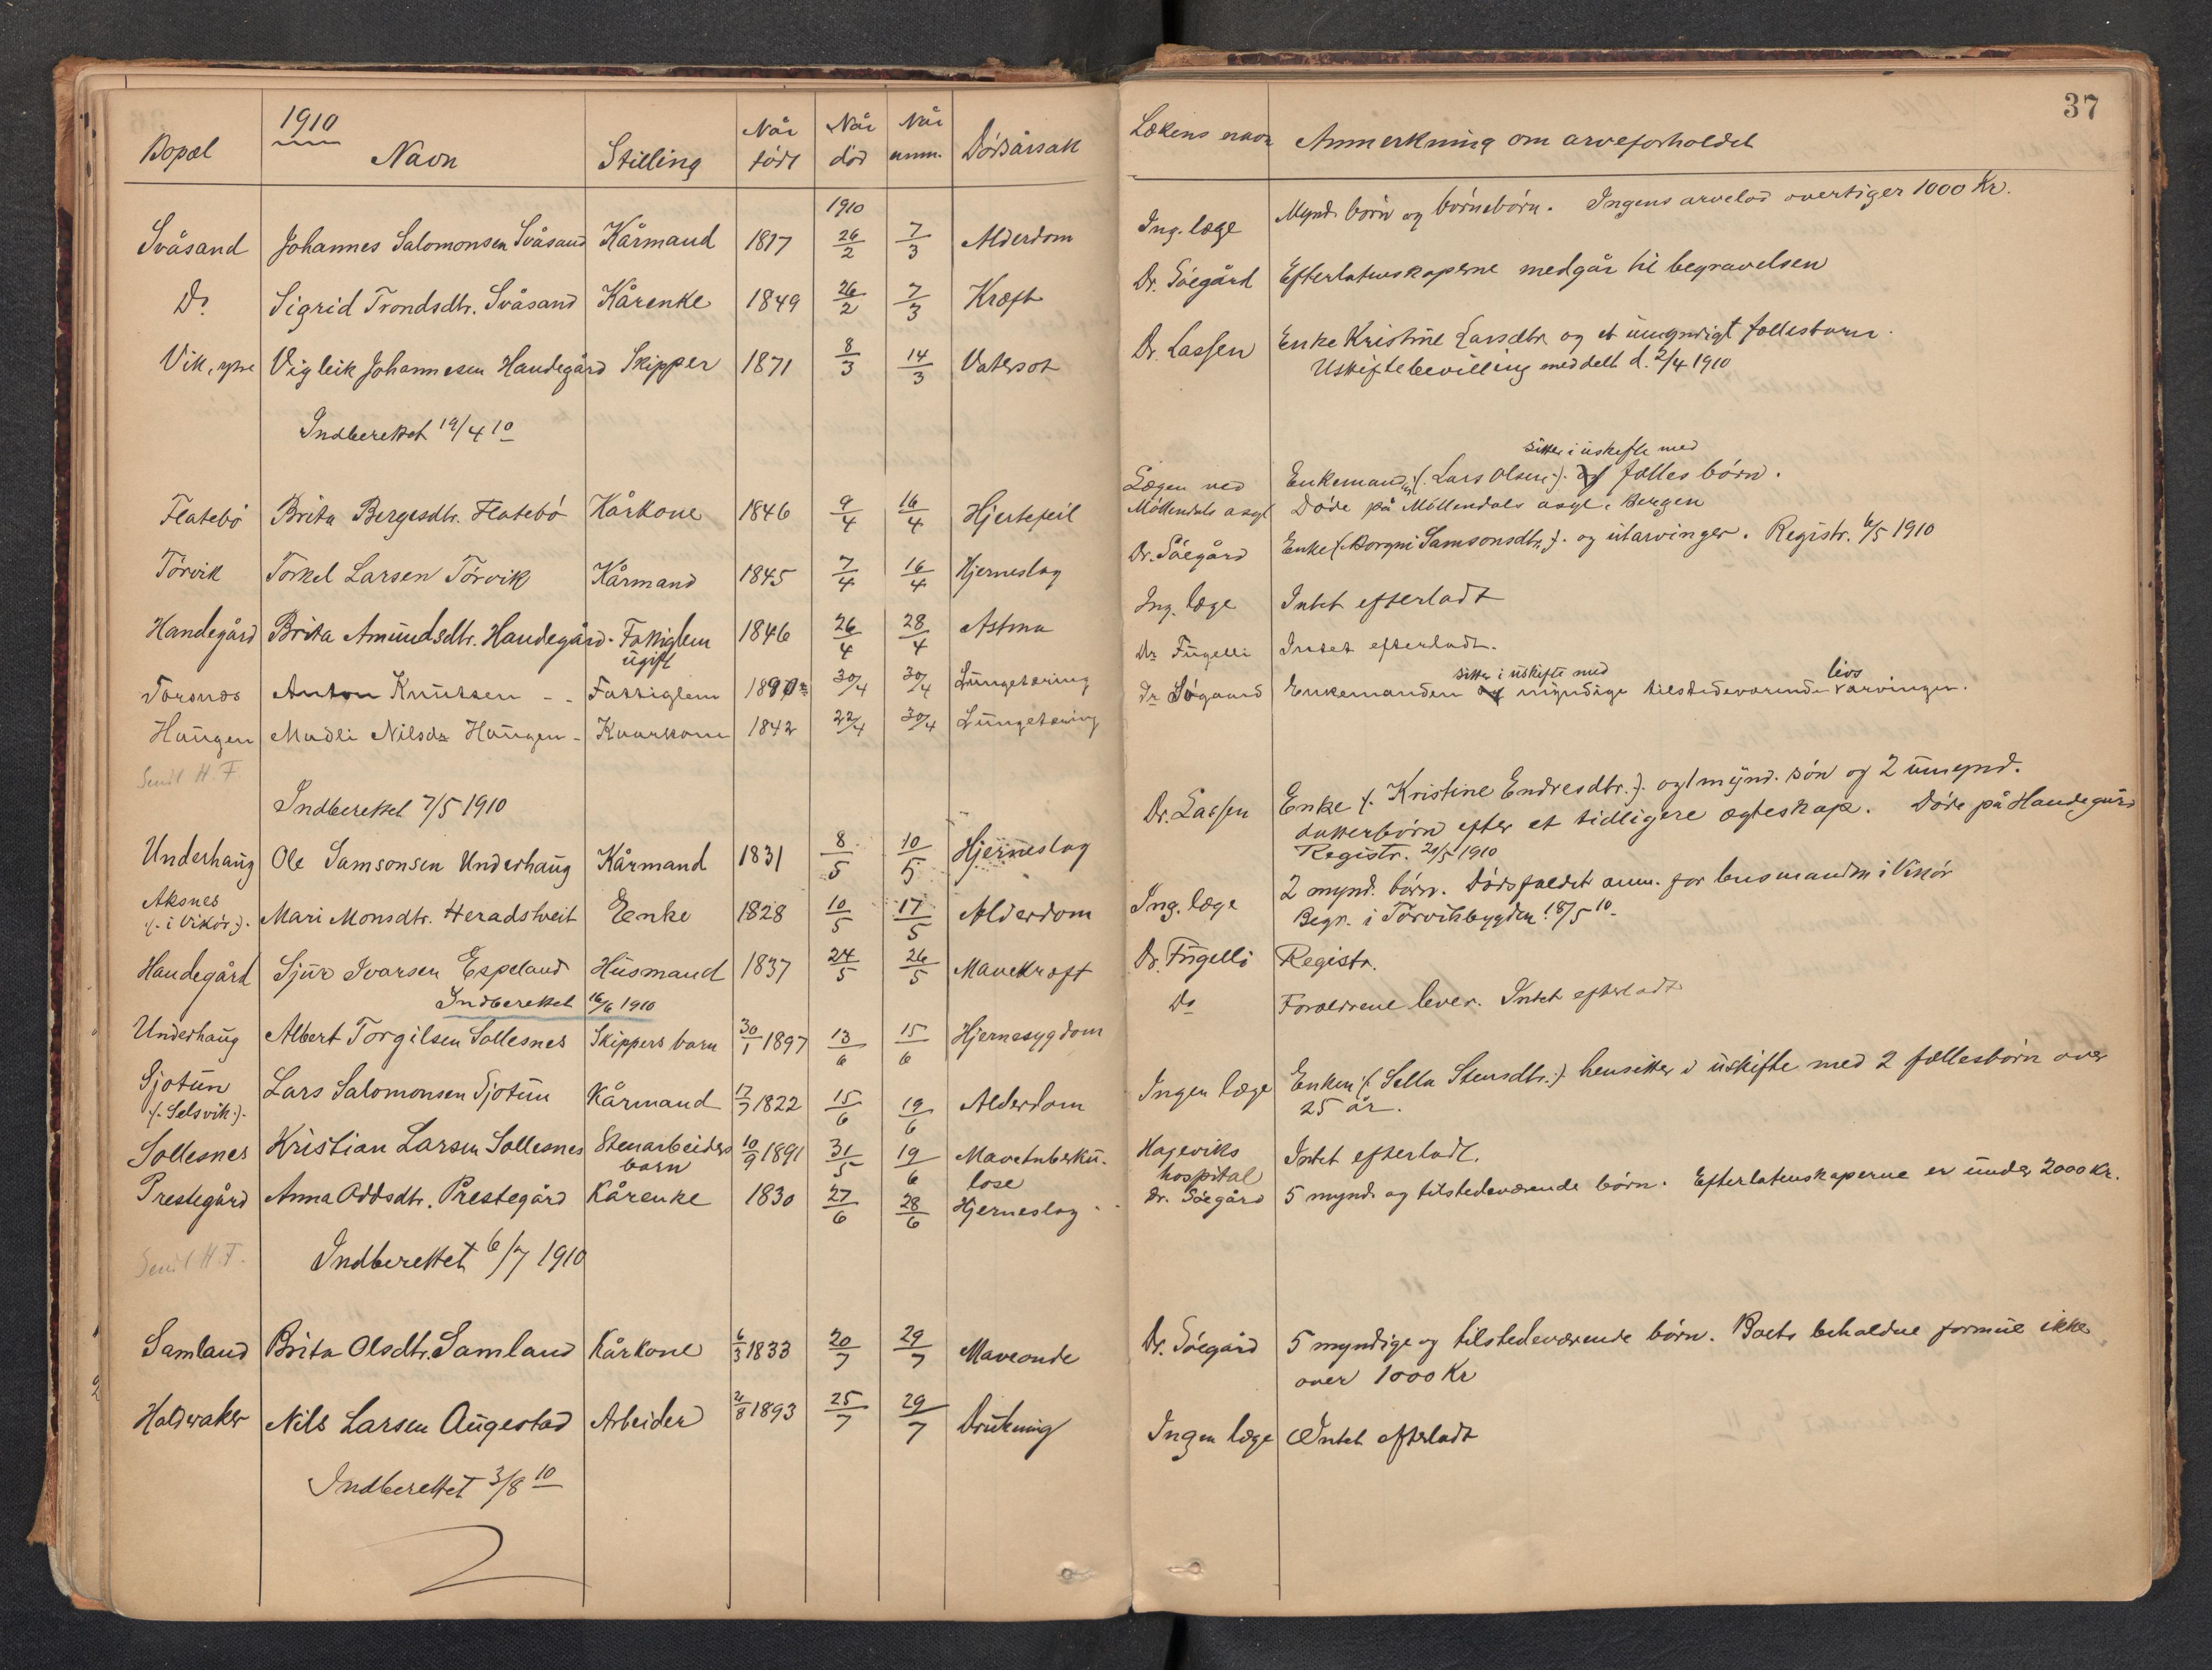 37
1910
Bopæl Navn Stilling Når født Når død Når anm. Dødsårsak Lækens navn Anmerkning om arveforholdet
1910
Svåsand Johannes Salomonsen Svåsand Kårmand 1817 26/2 7/3 Alderdom Ing. læge Mynd. børn og børnebørn. Ingens arvelod overstiger 1000 Kr.
Do Sigrid Trondsdtr. Svåsand Kårenke 1849 26/2 7/3 Kræft Dr. Söegård Efterlatenskaperne medgår til begravelsen
Vik, ytre Vigleik Johannesen Handegård Skipper 1871 8/3 14/3 Vatersot Dr. Lassen Enke Kristine Larsdtr. og et umyndigt fællesbarn.
Uskiftebevilling meddelt d. 2/4 1910
Indberettet 19/4 10
sitter i uskifte med
Flatebö Brita Bergesdtr. Flatebö Kårkone 1846 9/4 16/4 Hjertefeil Lægen ved Enkemand (: Lars Olsen :) og fælles børn.
Möllendals asyl Døde på Möllendals asyl i Bergen
Törvik Torkel Larsen Törvik Kårmand 1845 7/4 16/4 Hjerneslag Dr. Söegård Enke (: Borgni Samsonsdtr. :) og utarvinger. Registr. 6/5 1910
Handegård Brita Amundsdtr. Handegård Fattiglem ugift 1846 26/4 28/4 Astma Ing. læge Intet efterladt
Torsnæs Anton Knutsen - - Fattiglem 1890 30/4 30/4 Lungetæring Dr Fugelli Intet efterladt.
sitter i uskifte med livs
Haugen Madli Nilsdr Haugen - Kaarkone 1842 22/4 30/4 Lungetæring Dr Søgaard Enkemanden og myndige tilstedeværende arvinger.
Sendt H. F.
Indberettet 7/5 1910
Underhaug Ole Samsonsen Underhaug Kårmand 1831 8/5 10/5 Hjerneslag Dr. Lassen Enke (: Kristine Endresdtr. :) og 1 mynd. søn og 2 umynd.
datterbørn efter et tidligere ægteskap. Døde på Handegård
Registr. 21/5 1910
Aksnes (: i Vikör :) Mari Monsdtr. Heradstveit Enke 1828 10/5 17/5 Alderdom Ing. læge 2 mynd. børn. Dødsfaldet anm. for lensmanden i Vikör
Begr. i Törvikbygden 18/5 10
Handegård Sjur Ivarsen Espeland Husmand 1837 24/5 26/5 Mavekræft Dr. Fugelli Registr.
Indberettet 16/6 1910
Underhaug Albert Torgilsen Sollesnes Skippers barn 30/1 1897 13/6 15/6 Hjernesygdom Do Forældrene lever. Intet efterladt
Sjotun (: Selsvik :) Lars Salomonsen Sjotun Kårmand 17/7 1822 15/6 19/6 Alderdom Ingen læge Enken (: Sella Stensdtr. :) hensitter i uskifte med 2 fællesbörn over
25 år.
Sollesnes Kristian Larsen Sollesnes Stenarbeiders barn 10/9 1891 31/5 19/6 Mavetuberkulose Hageviks hospital Intet efterladt.
Prestegård Anna Oddsdtr. Prestegård Kårenke 1830 27/6 28/6 Hjerneslag Dr. Söegård 5 mynd. og tilstedeværende børn. Efterlatenskaperne er under 2000 Kr.
Sendt H. F.
Indberettet 6/7 1910
Samland Brita Olsdtr. Samland Kårkone 6/3 1833 20/7 29/7 Maveonde Dr. Söegård 5 myndige og tilstedeværende børn. Boets beholdne formue ikke
over 1000 Kr
Halderaker Nils Larsen Augestad Arbeider 1893 25/7 29/7 Drukning Ingen læge Intet efterladt
Indberettet 3/8 10